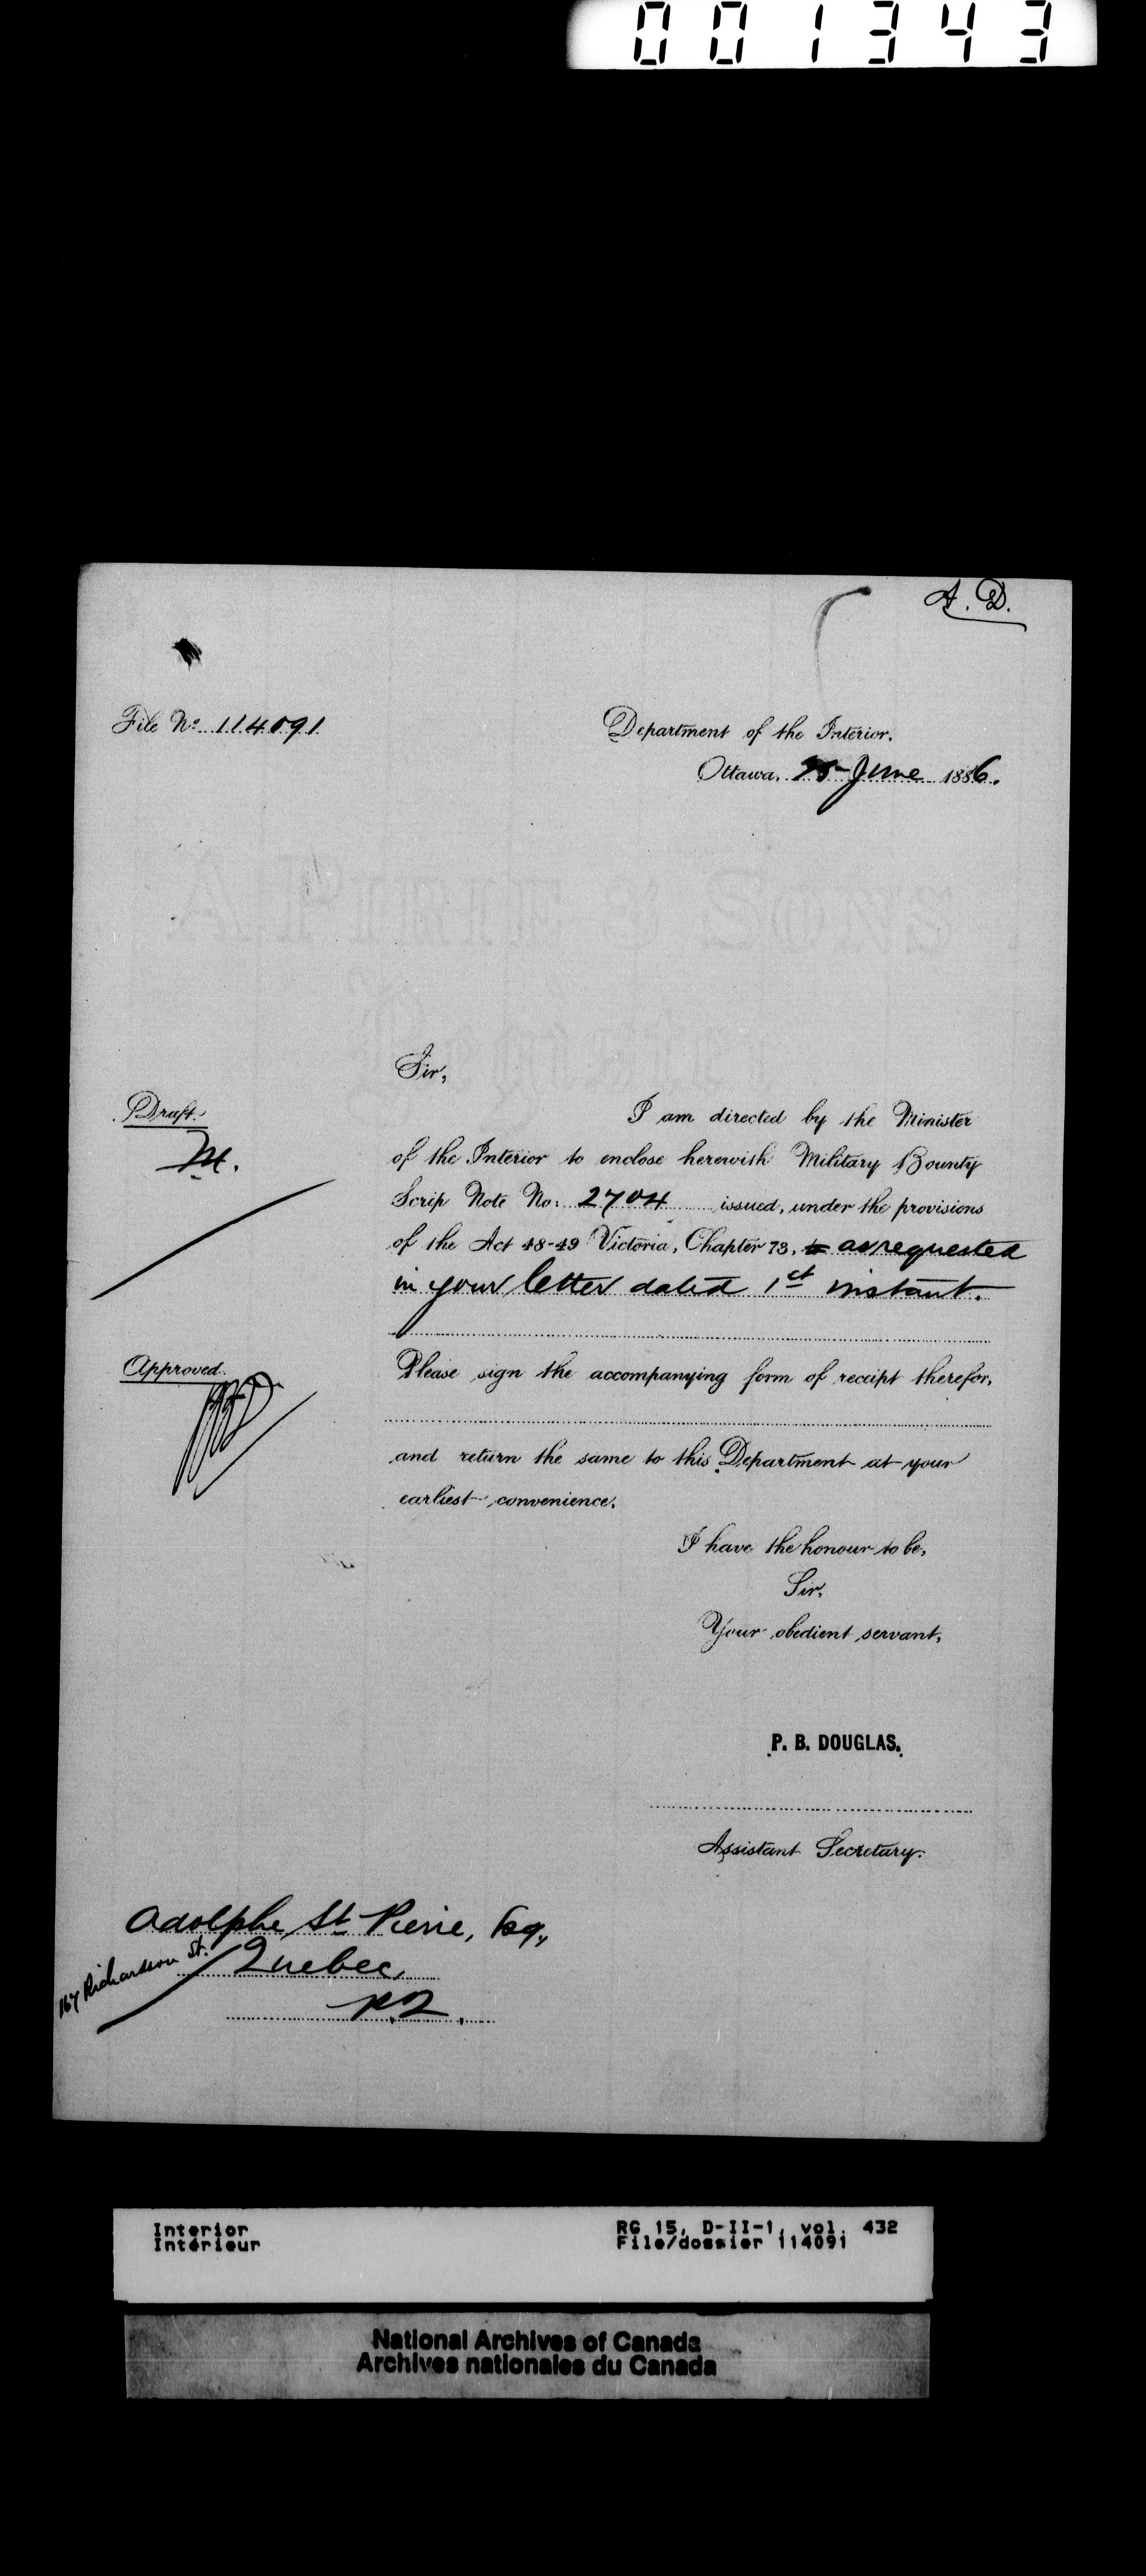 001343
A. D.
File No. 114091
Department of the Interior.
Ottawa, June 1886.
Sir,
Draft.
M.
I am directed by the Minister
of the Interior to enclose herewith Military Bounty
Scrip Note No: 2704 issued, under the provisions
of the Act 48-49 Victoria, Chapter 73, as requested
in your letter dated 1st instant.
Approved.
Please sign the accompanying form of receipt therefor,
and return the same to this Department at your
earliest convenience.
I have the honour to be,
Sir,
Your obedient servant,
P. B. DOUGLAS.
Assistant Secretary.
Adolphe St Pierre, Esq,
167 Richardson St.
Quebec,
P.Q.
Interior
Intérieur
RG 15, D-II-1, vol. 432
File/dossier 114091
National Archives of Canada
Archives nationales du Canada